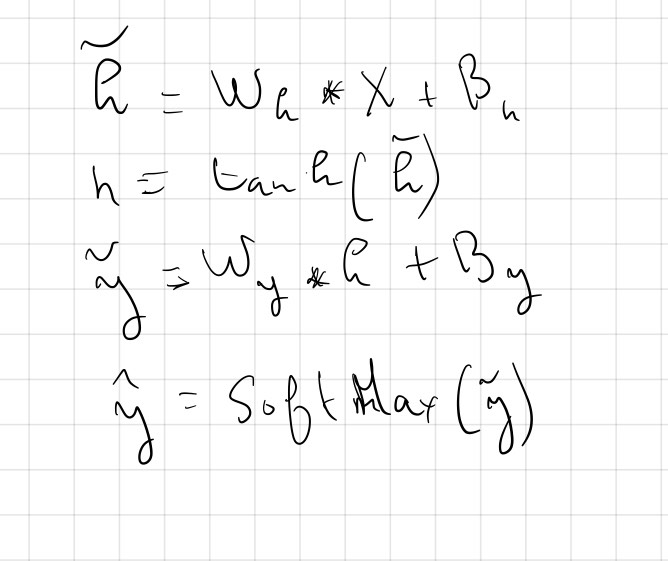 h̃ = W_h * X + B_h
h = tanh(h̃)
ỹ = W_y * h + B_y
ŷ = SoftMax(ỹ)